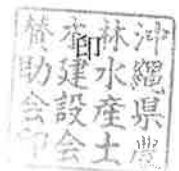 沖縄県農
林水産土
木建設会
賛助会印
印